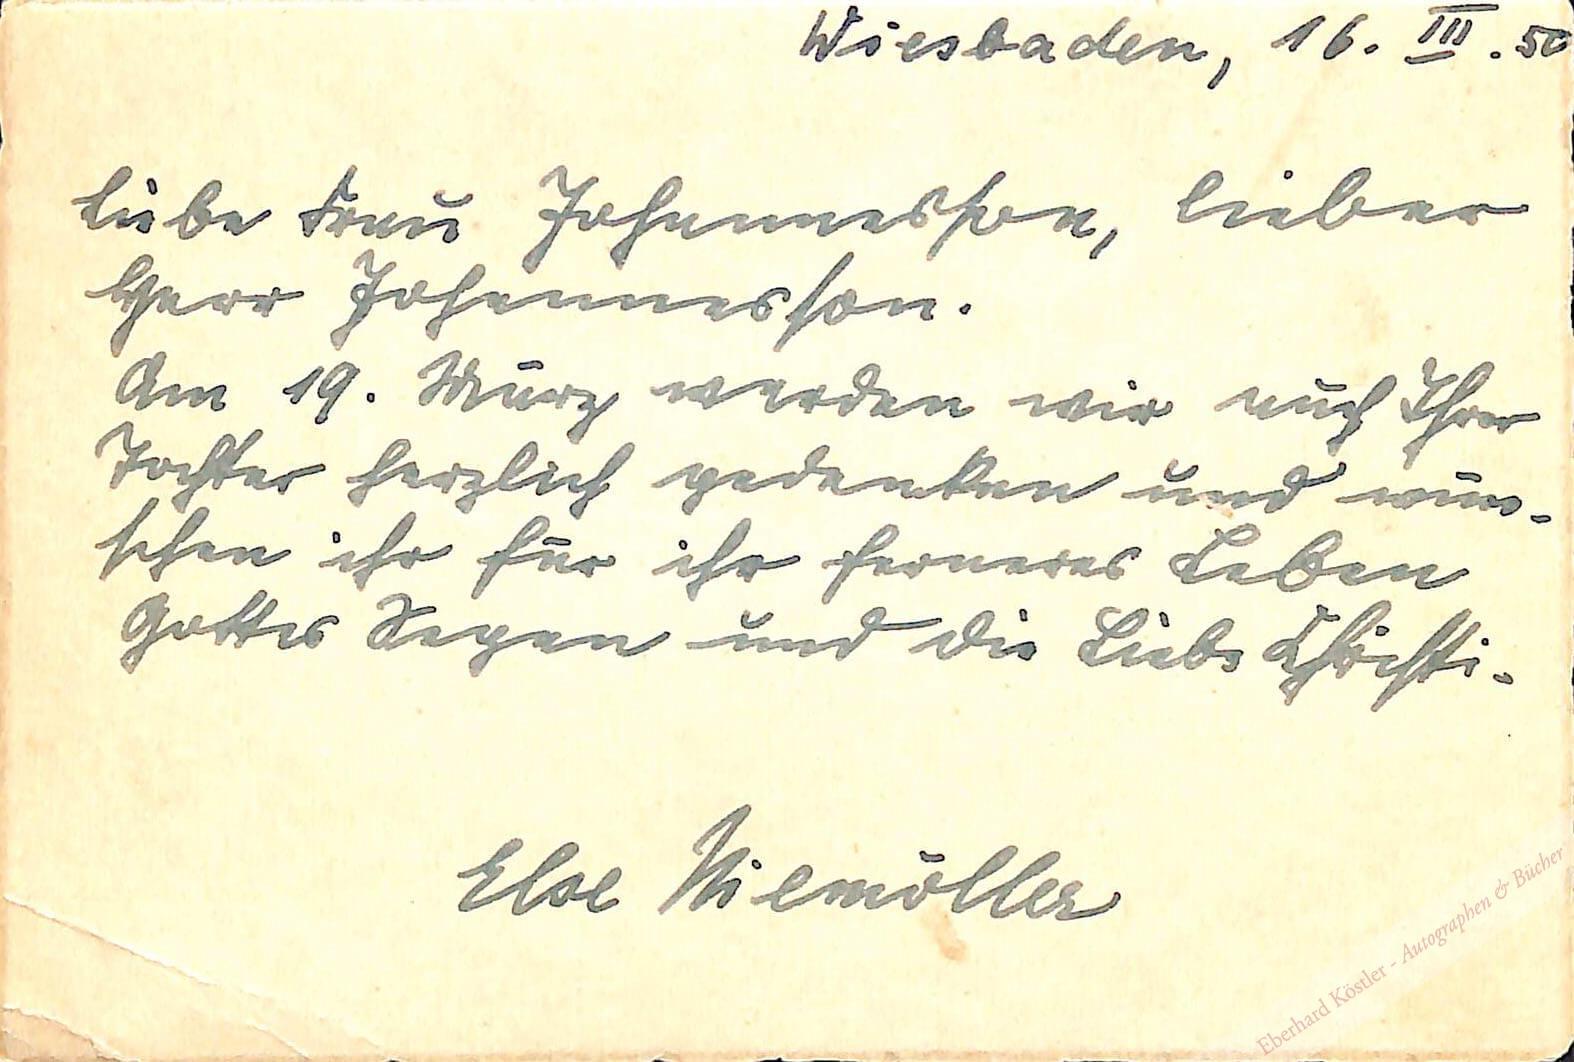 Wiesbaden, 16. III. 50
Liebe Frau Johannesson, lieber
Herr Johannesson.
Am 19. März werden wir auch Ihrer
Tochter herzlich gedenken und wün-
schen ihr für ihr ferneres Leben
Gottes Segen und die Liebe Christi.
Else Niemöller
Eberhard Köstler - Autographen & Bücher